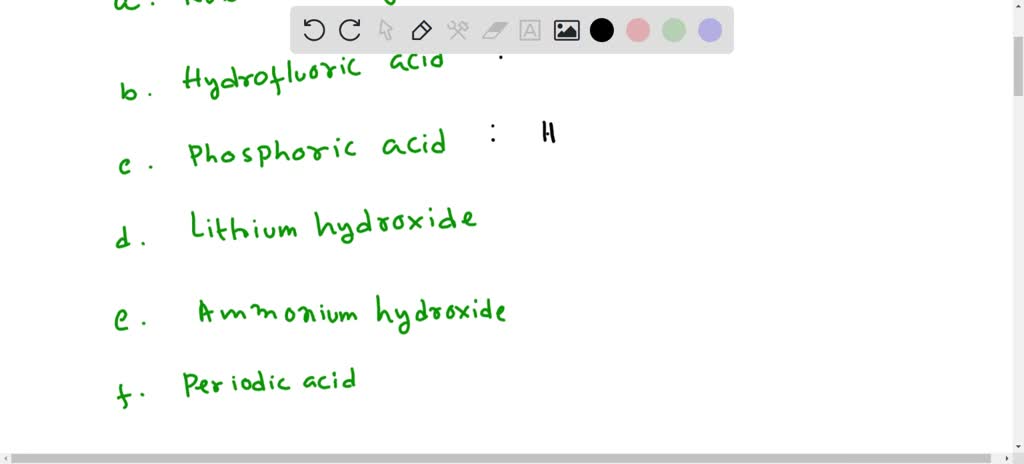 a.
b. Hydrofluoric acid :
c. Phosphoric acid : H
d. Lithium hydroxide
e. Ammonium hydroxide
f. Periodic acid